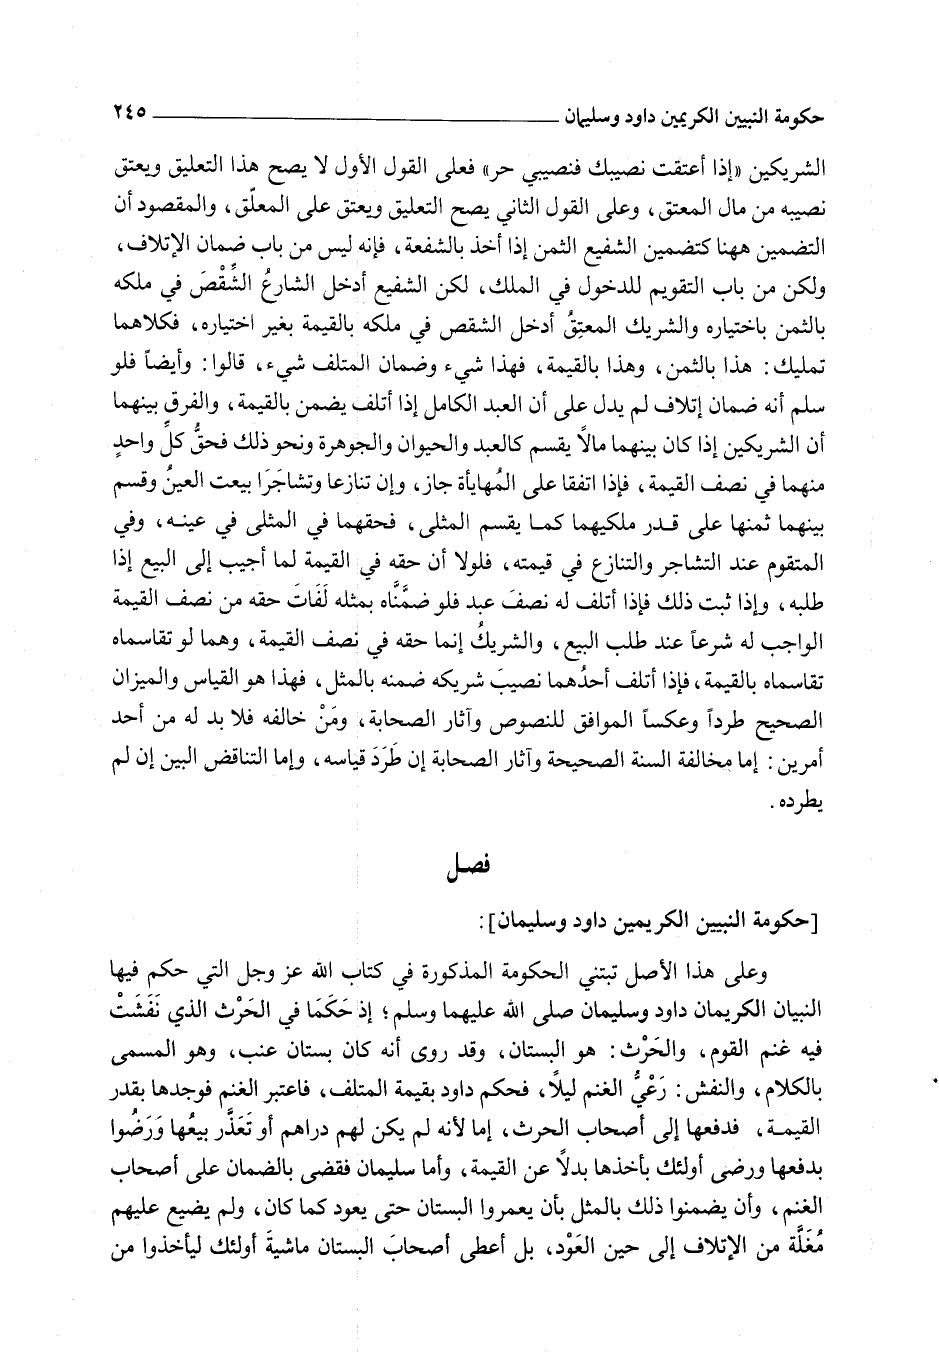 حكومة النبيين الكريمين داود وسليمان ٢٤٥
الشريكين «إذا أعتقت نصيبك فنصيبي حر» فعلى القول الأول لا يصح هذا التعليق ويعتق
نصيبه من مال المعتق، وعلى القول الثاني يصح التعليق ويعتق على المعلّق، والمقصود أن
التضمين ههنا كتضمين الشفيع الثمن إذا أخذ بالشفعة، فإنه ليس من باب ضمان الإتلاف،
ولكن من باب التقويم للدخول في الملك، لكن الشفيع أدخل الشارعُ الشِّقْصَ في ملكه
بالثمن باختياره والشريك المعتِقُ أدخل الشقص في ملكه بالقيمة بغير اختياره، فكلاهما
تمليك: هذا بالثمن، وهذا بالقيمة، فهذا شيء وضمان المتلف شيء، قالوا: وأيضاً فلو
سلم أنه ضمان إتلاف لم يدل على أن العبد الكامل إذا أتلف يضمن بالقيمة، والفرق بينهما
أن الشريكين إذا كان بينهما مالا يقسم كالعبد والحيوان والجوهرة ونحو ذلك فحقُّ كلِّ واحدٍ
منهما في نصف القيمة، فإذا اتفقا على المُهايأة جاز، وإن تنازعا وتشاجَرَا بيعت العينُ وقسم
بينهما ثمنها على قدر ملكيهما كما يقسم المثلى، فحقهما في المثلى في عينه، وفي
المتقوم عند التشاجر والتنازع في قيمته، فلولا أن حقه في القيمة لما أجيب إلى البيع إذا
طلبه، وإذا ثبت ذلك فإذا أتلف له نصفَ عبد فلو ضمَّنَّاه بمثله لَفَاتَ حقه من نصف القيمة
الواجب له شرعاً عند طلب البيع، والشريكُ إنما حقه في نصف القيمة، وهما لو تقاسماه
تقاسماه بالقيمة، فإذا أتلف أحدُهما نصيبَ شريكه ضمنه بالمثل، فهذا هو القياس والميزان
الصحيح طرداً وعكساً الموافق للنصوص وآثار الصحابة، ومَنْ خالفه فلا بد له من أحد
أمرين: إما مخالفة السنة الصحيحة وآثار الصحابة إن طَرَدَ قياسه، وإما التناقض البين إن لم
يطرده.
فصل
[حكومة النبيين الكريمين داود وسليمان]:
وعلى هذا الأصل تبتني الحكومة المذكورة في كتاب الله عز وجل التي حكم فيها
النبيان الكريمان داود وسليمان صلى الله عليهما وسلم؛ إذ حَكَمَا في الحَرْث الذي نَفَشَتْ
فيه غنم القوم، والحَرْث: هو البستان، وقد روى أنه كان بستان عنب، وهو المسمى
بالكلام، والنفش: رَعْيُ الغنم ليلًا، فحكم داود بقيمة المتلف، فاعتبر الغنم فوجدها بقدر
القيمة، فدفعها إلى أصحاب الحرث، إما لأنه لم يكن لهم دراهم أو تَعَذَّر بيعُها وَرَضُوا
بدفعها ورضى أولئك بأخذها بدلًا عن القيمة، وأما سليمان فقضى بالضمان على أصحاب
الغنم، وأن يضمنوا ذلك بالمثل بأن يعمروا البستان حتى يعود كما كان، ولم يضيع عليهم
مُغَلَّة من الإتلاف إلى حين العَوْد، بل أعطى أصحابَ البستان ماشيةَ أولئك ليأخذوا من